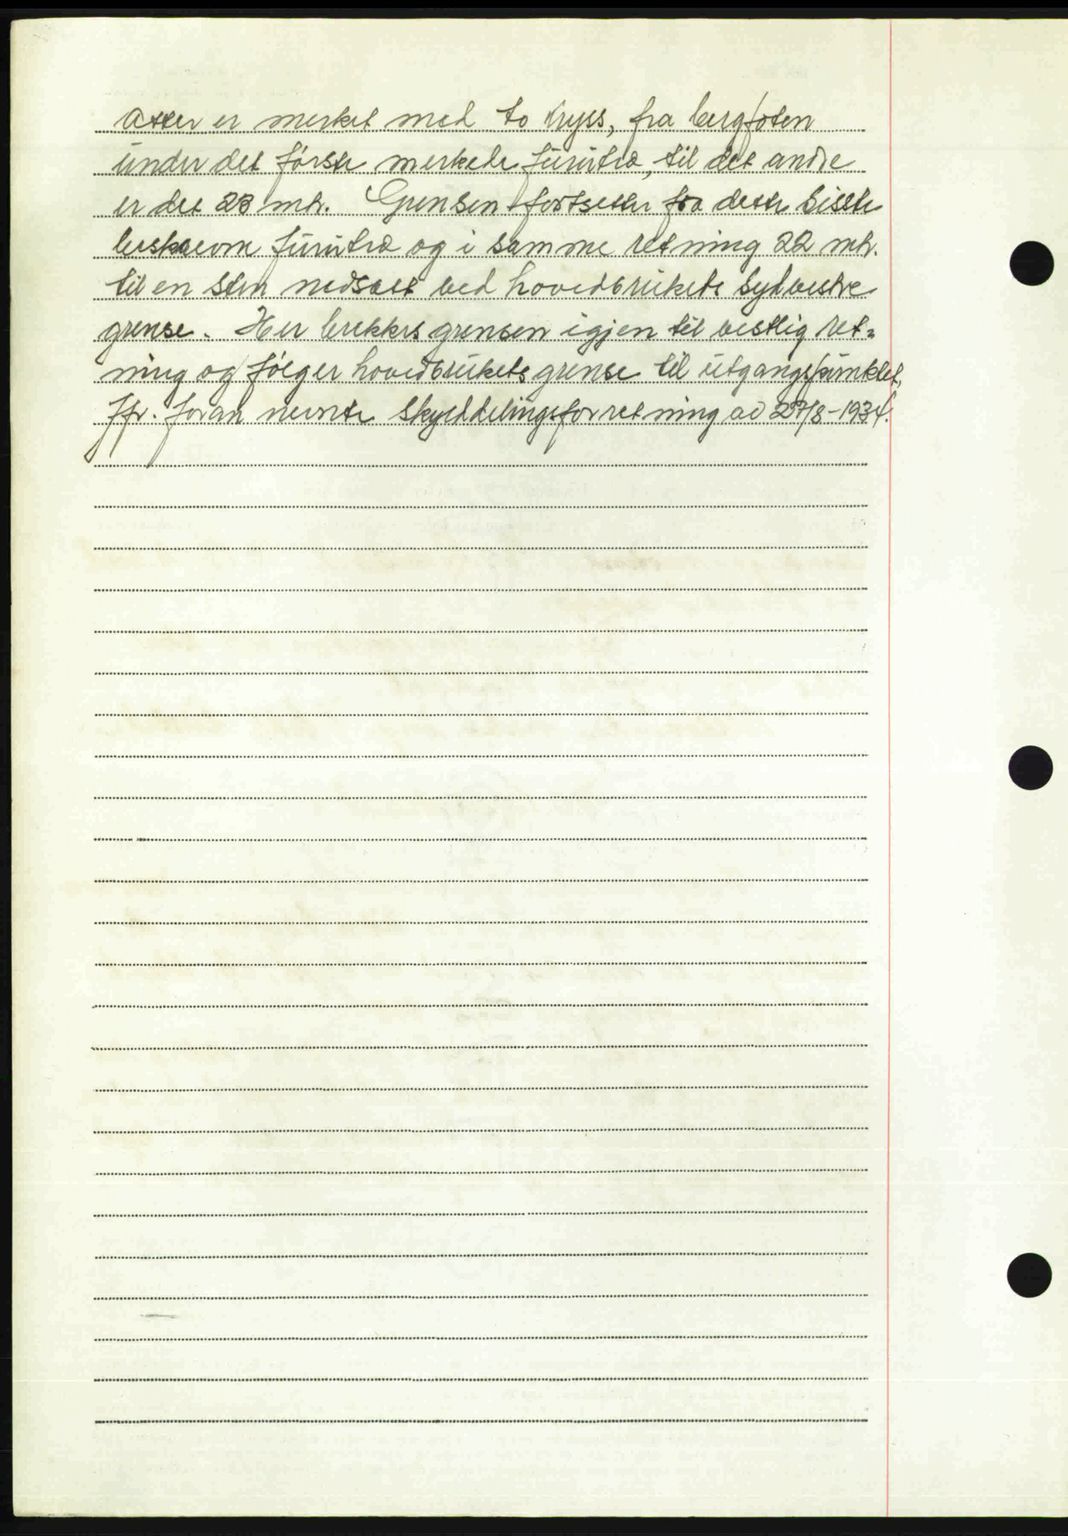 atter er merket med to kryss, fra bergfoten
under det første merkede furutræ, til det andre
er det 23 mtr. Grensen fortsetter fra dette siste
beskrevne furutræ og i samme retning 22 mtr.
til en sten nedsatt ved hovedbrukets sydvestre
grense. Her brekkes grensen igjen til vestlig ret=
ning og følger hovedbrukets grense til utgangspunktet,
Jfr. foran nevnte skylddelingsforretning av 27/8-1934.